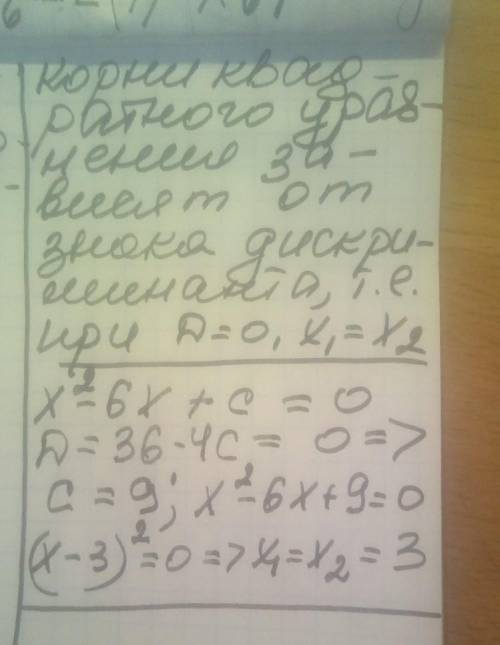 корни квад-
ратного урав-
нения за-
висят от
знака дискри-
минанта, т.е.
при D=0, x₁=x₂
x²-6x+c=0
D=36-4c=0=>
c=9; x²-6x+9=0
(x-3)²=0=>x₁=x₂=3